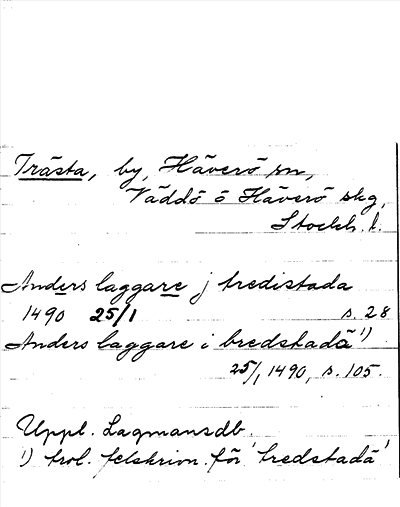 Trästa, by, Häverö sn,
Väddö o Häverö skg,
Stockh. l.
Anders laggare j tredistada
1490 25/1 s. 28
Anders laggare i bredstadā 1)
25/1, 1490, s. 105.
Uppl. Lagmansdb.
1) trol. felskrivn. för 'tredstadā'